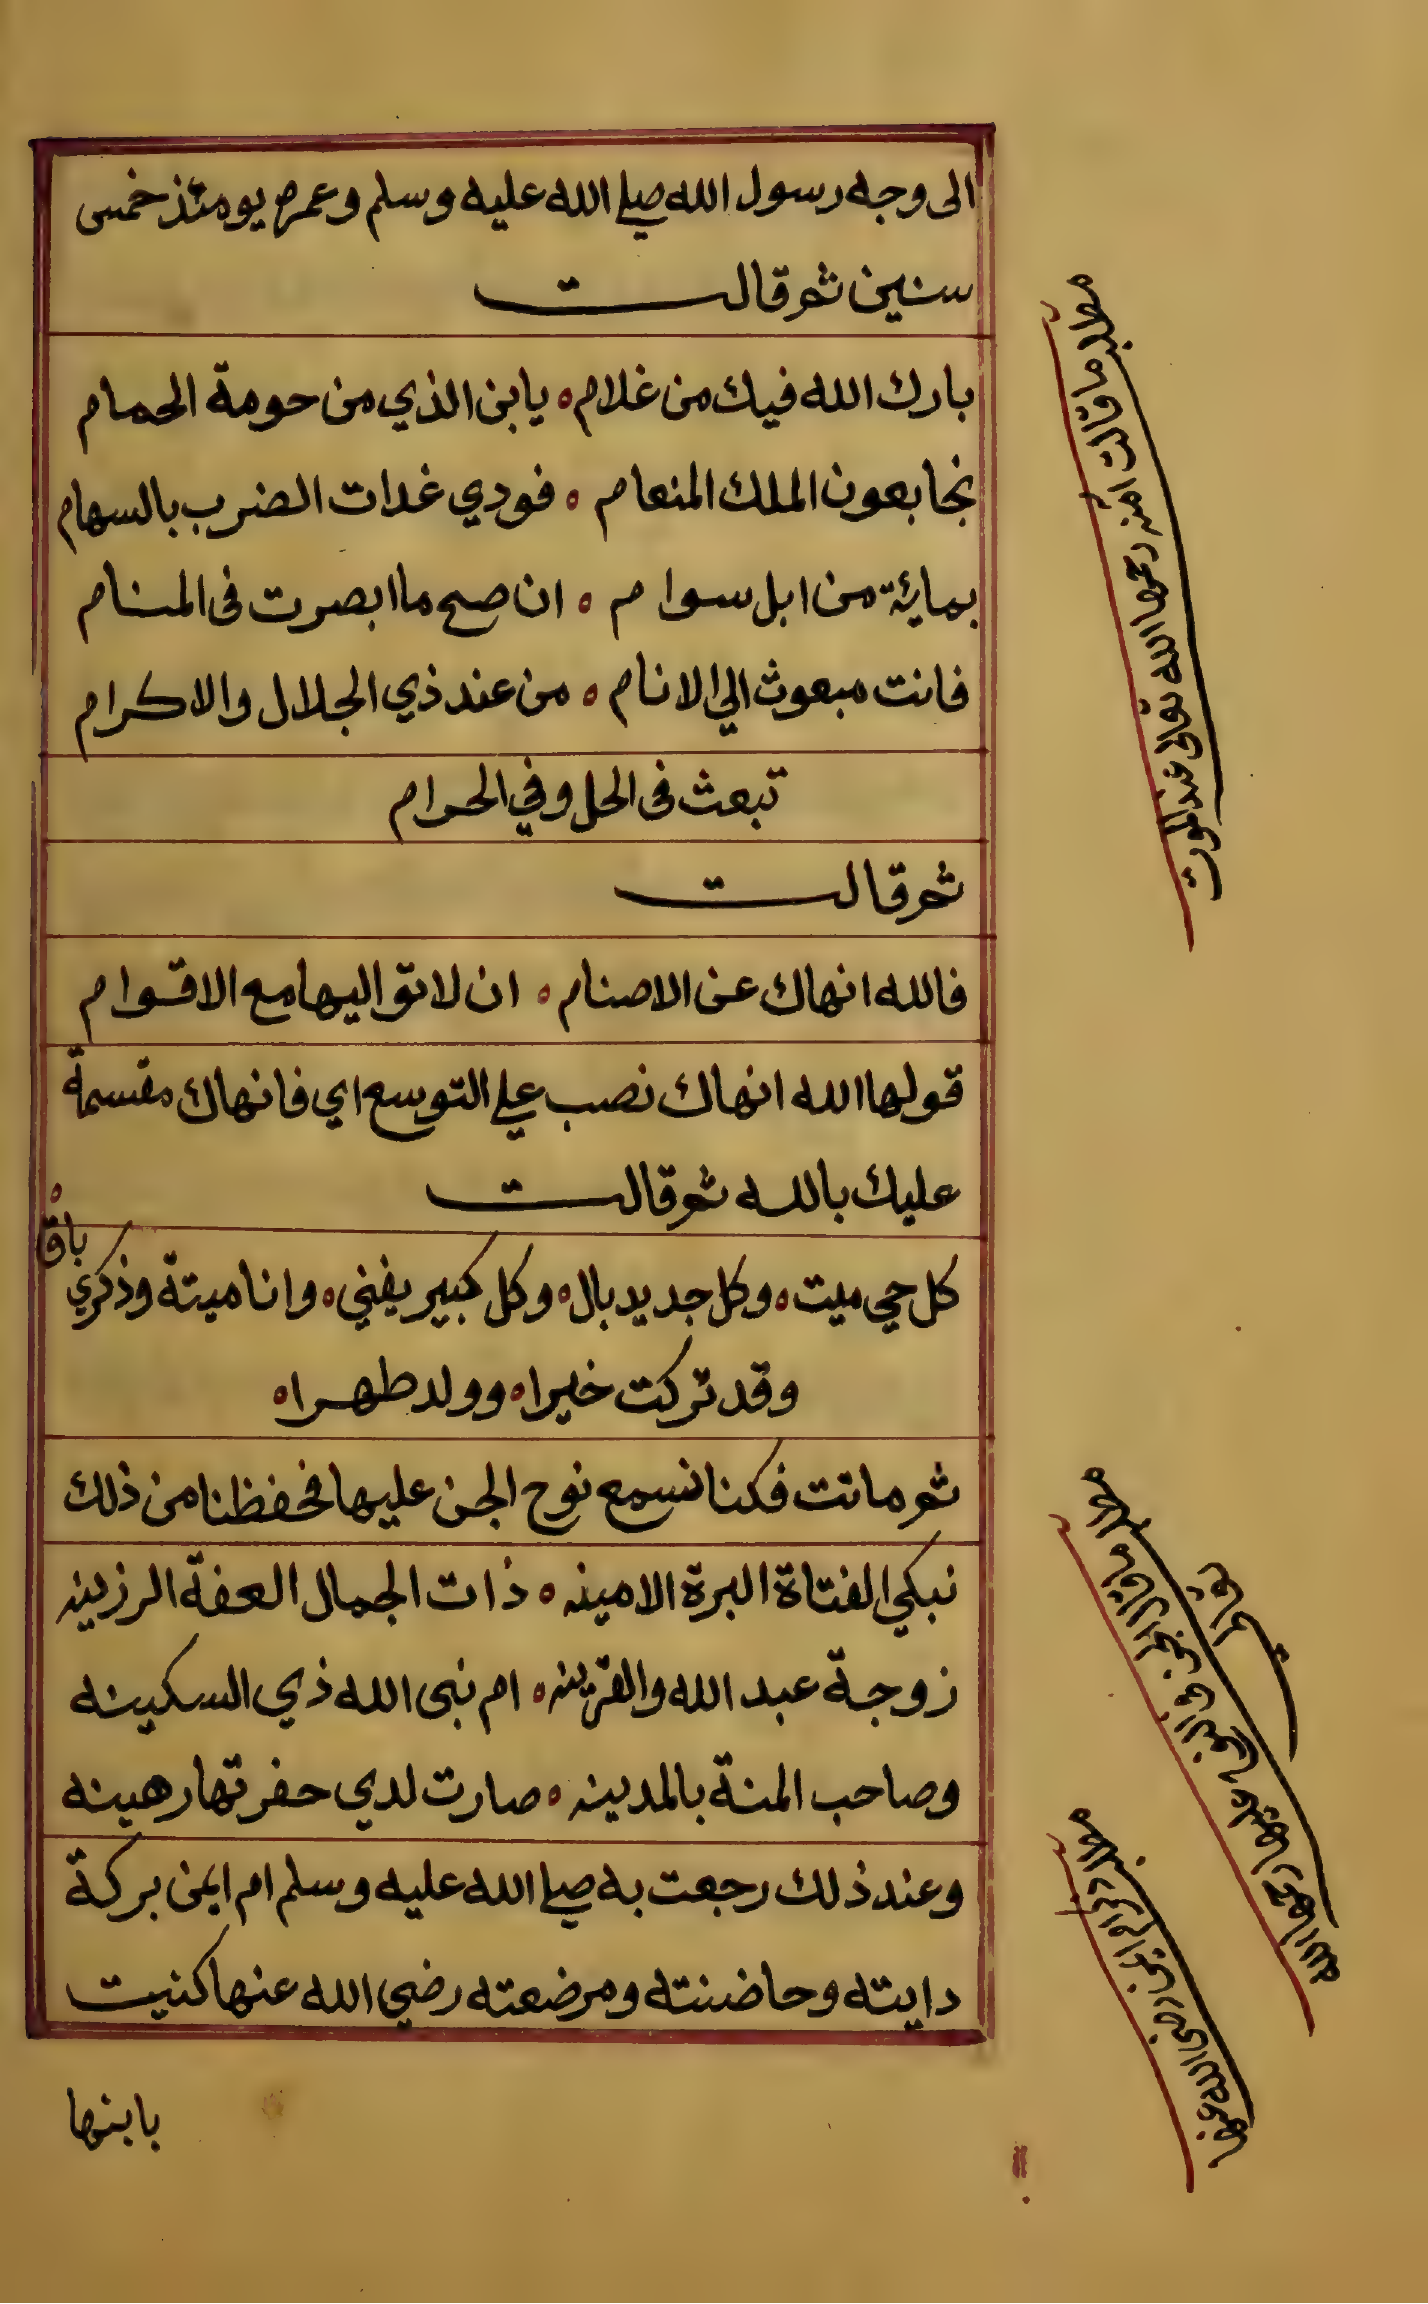 الى وجه رسول الله صلى الله عليه وسلم وعمره يومئذ خمس
سنين ثم قالت
بارك الله فيك من غلام ه يا بن الذي من حومة الحمام
نجا بعون الملك المنعام ه فودي غدات الضرب بالسهام
بمائة من ابل سوام ه ان صح ما ابصرت فى المنام
فانت مبعوث الي الانام ه من عند ذي الجلال والاكرام
تبعث فى الحل وفي الحرام
ثم قالت
فالله انهاك عن الاصنام ه ان لا تواليها مع الاقوام
قولها الله انهاك نصب علي التوسع اي فانهاك مقسمة
عليك بالله ثم قالت
كل حي ميت ه وكل جديد بال ه وكل كبير يفني ه وانا ميتة وذكري باق ه
وقد تركت خيرا ه وولد طهرا ه
ثم ماتت فكنا نسمع نوح الجن عليها فحفظنا من ذلك
نبكي الفتاة البرة الامينه ه ذات الجمال العفة الرزينه
زوجة عبد الله والقرينه ه ام نبى الله ذي السكينه
وصاحب المنة بالمدينه ه صارت لدي حفرتها رهينه
وعند ذلك رجعت به صلى الله عليه وسلم ام ايمن بركة
دايته وحاضنته ومرضعته رضي الله عنها كنيت
بابنها
مطلب ما قالت امنه رحمها الله تعالى عند الموت
مطلب ما قال الجن في النوح عليها رحمها الله
تعالى
مطلب ام ايمن رضى الله عنها